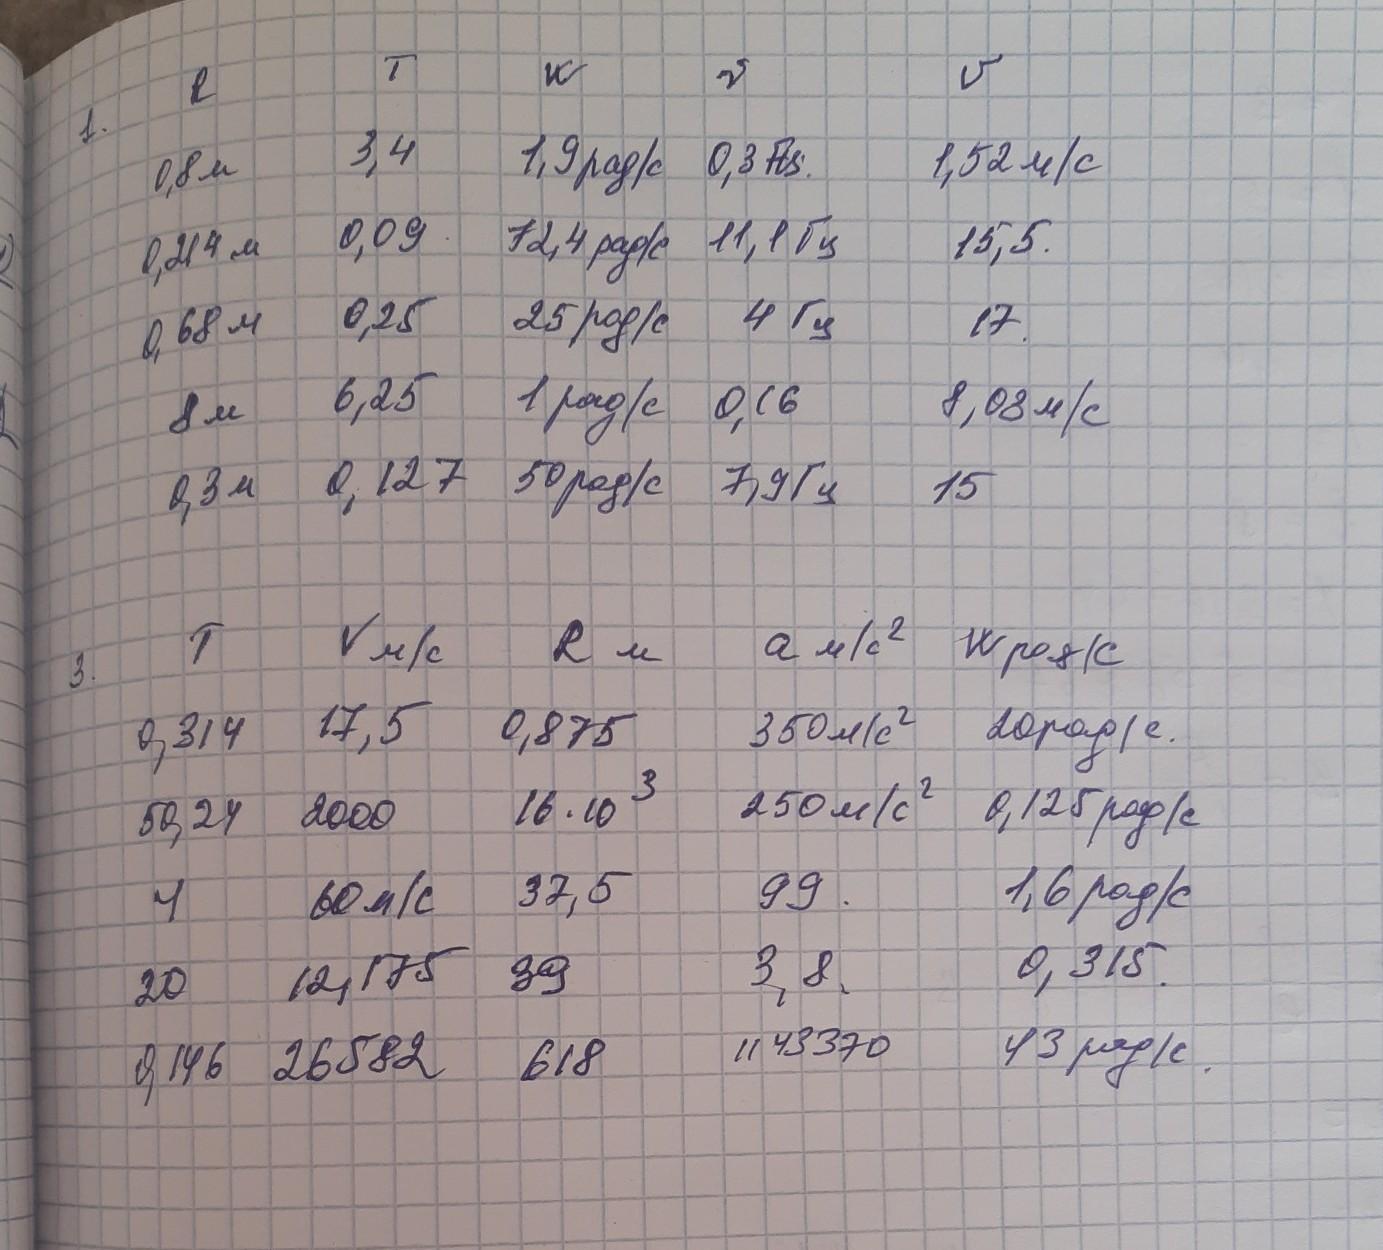 1. R T W ν V
0,8 м 3,4 1,9 рад/с 0,3 Гц. 1,52 м/с
0,214 м 0,09 72,4 рад/с 11,1 Гц 15,5.
0,68 м 0,25 25 рад/с 4 Гц 17.
8 м 6,25 1 рад/с 0,16 8,08 м/с
0,3 м 0,127 50 рад/с 7,9 Гц 15
3. T V м/с R м a м/с² W рад/с
0,314 17,5 0,875 350 м/с² 20 рад/с.
50,24 2000 16·10³ 250 м/с² 0,125 рад/с
4 60 м/с 37,5 99. 1,6 рад/с
20 12,175 39 3,8. 0,315.
0,146 26582 618 1143370 43 рад/с.